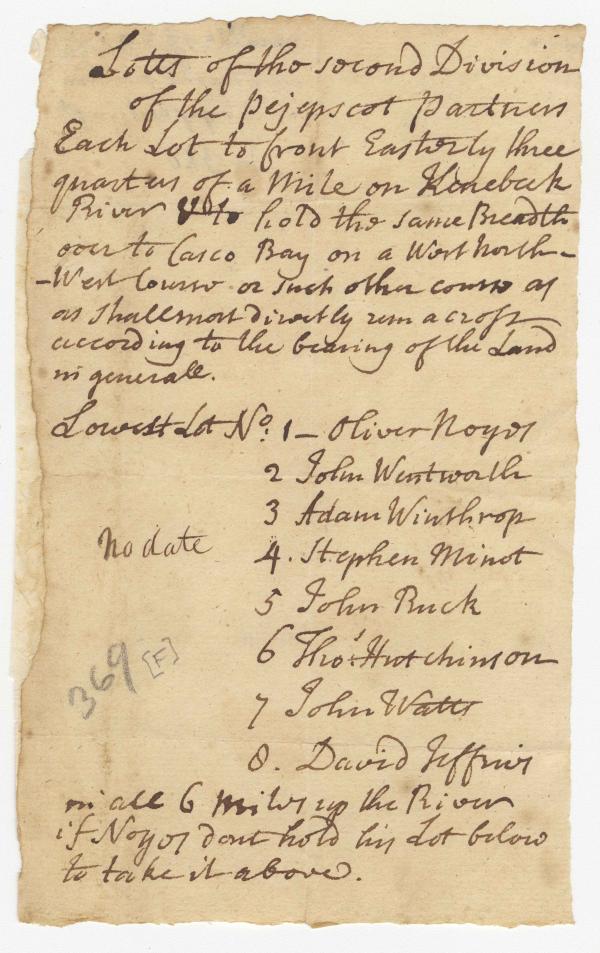 Lotts of the second Division
of the Pejepscot Partners
Each Lot to front Easterly three
quarters of a Mile on Kenebeck
River & to hold the same Breadth
over to Casco Bay on a West North-
-West Course or such other course as
as shall most directly run a cross
according to the bearing of the Land
in generall.
Lowest Lot No: 1 - Oliver Noyes
2 John Wentworth
3 Adam Winthrop
No date
4. Stephen Minot
5 John Ruck
6 Thos: Hutchinson
369 [F]
7 John Watts
8. David Jeffries
in all 6 Miles up the River
if Noyes dont hold his Lot below
to take it above.